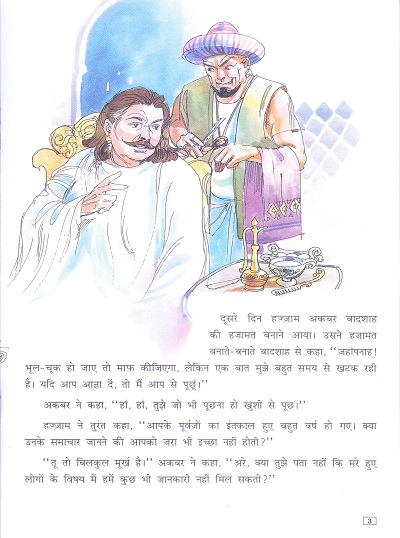 दूसरे दिन हज़्ज़ाम अकबर बादशाह
की हजामत बनाने आया। उसने हजामत
बनाते-बनाते बादशाह से कहा, "जहांपनाह!
भूल-चूक हो जाए तो माफ़ कीजिएगा, लेकिन एक बात मुझे बहुत समय से खटक रही
है। यदि आप आज्ञा दें, तो मैं आप से पूछूं।"
अकबर ने कहा, "हां, हां, तुझे जो भी पूछना हो खुशी से पूछ।"
हज़्ज़ाम ने तुरंत कहा, "आपके पूर्वजों का इंतकाल हुए बहुत वर्ष हो गए। क्या
उनके समाचार जानने की आपको जरा भी इच्छा नहीं होती?"
"तू तो बिलकुल मूर्ख है।" अकबर ने कहा, "अरे, क्या तुझे पता नहीं कि मरे हुए
लोगों के विषय में हमें कुछ भी जानकारी नहीं मिल सकती?"
3